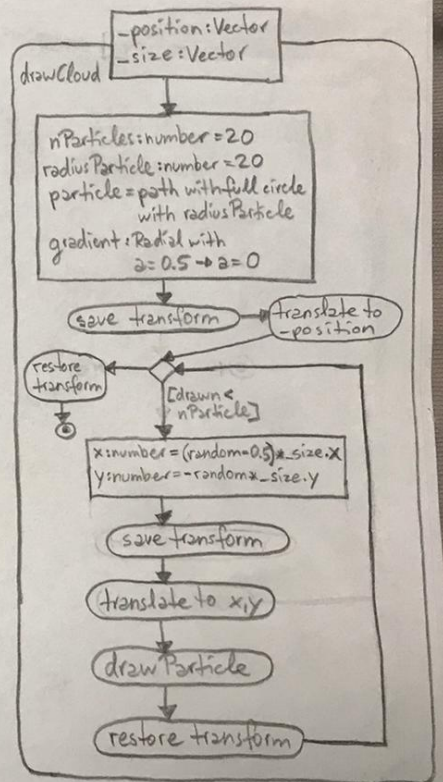 _position:Vector
_size:Vector
drawCloud
nParticles:number=20
radiusParticle:number=20
particle=path with full circle
with radiusParticle
gradient:Radial with
a=0.5→a=0
save transform
translate to
_position
restore
transform
[drawn<
nParticle]
x:number=(random-0.5)*_size.x
y:number=-random*_size.y
save transform
translate to x,y
drawParticle
restore transform